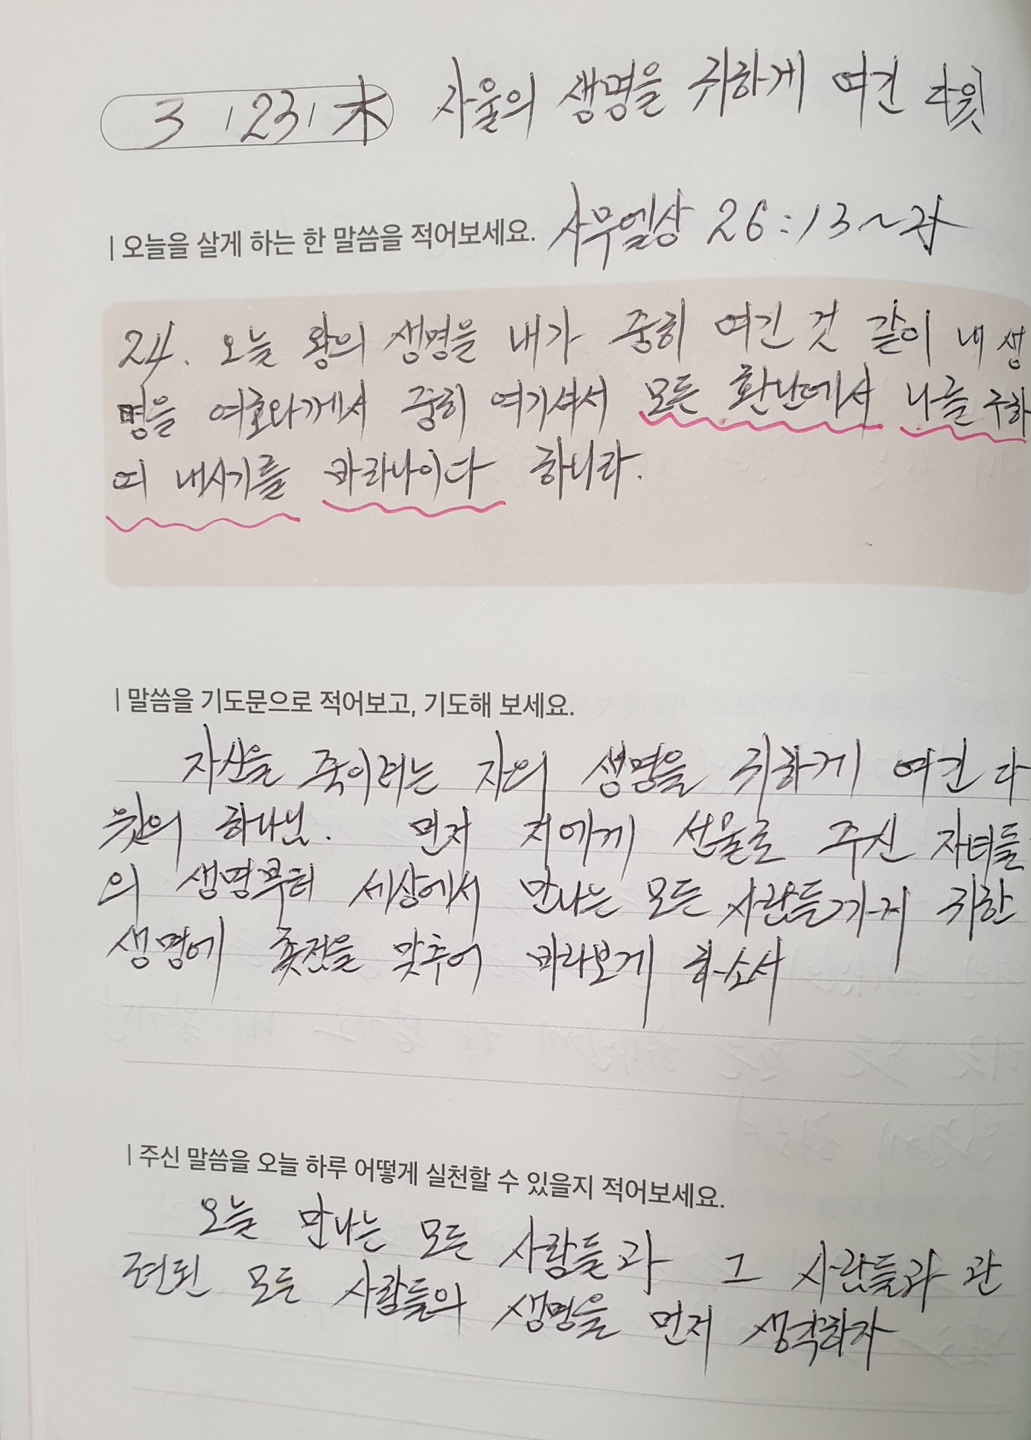 3 23 木 사울의 생명을 귀하게 여긴 다윗
| 오늘을 살게 하는 한 말씀을 적어보세요. 사무엘상 26:13~25
24. 오늘 왕의 생명을 내가 중히 여긴 것 같이 내 생
명을 여호와께서 중히 여기셔서 모든 환난에서 나를 구하
여 내시기를 바라나이다 하니라.
| 말씀을 기도문으로 적어보고, 기도해 보세요.
자신을 죽이려는 자의 생명을 귀하게 여긴 다
윗의 하나님. 먼저 저에게 선물로 주신 자녀들
의 생명부터 세상에서 만나는 모든 사람들까지 귀한
생명에 촛점을 맞추어 바라보게 하소서
| 주신 말씀을 오늘 하루 어떻게 실천할 수 있을지 적어보세요.
오늘 만나는 모든 사람들과 그 사람들과 관
련된 모든 사람들의 생명을 먼저 생각하자